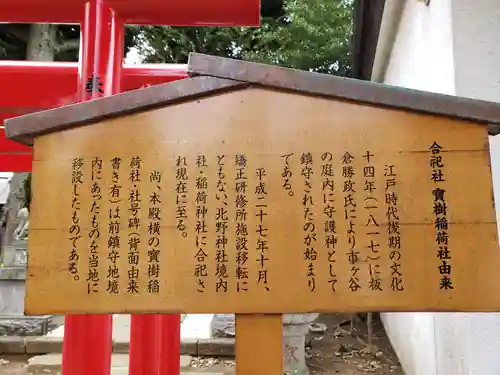 奉
合祀社 寶樹稲荷社由来
江戸時代後期の文化
十四年(一八一七)に板
倉勝政氏により市ヶ谷
の庭内に守護神として
鎮守されたのが始まり
である。
平成二十七年十月、
矯正研修所施設移転に
ともない、北野神社境内
社・稲荷神社に合祀さ
れ現在に至る。
尚、本殿横の寶樹稲
荷社・社号碑(背面由来
書き有)は前鎮守地境
内にあったものを当地に
移設したものである。